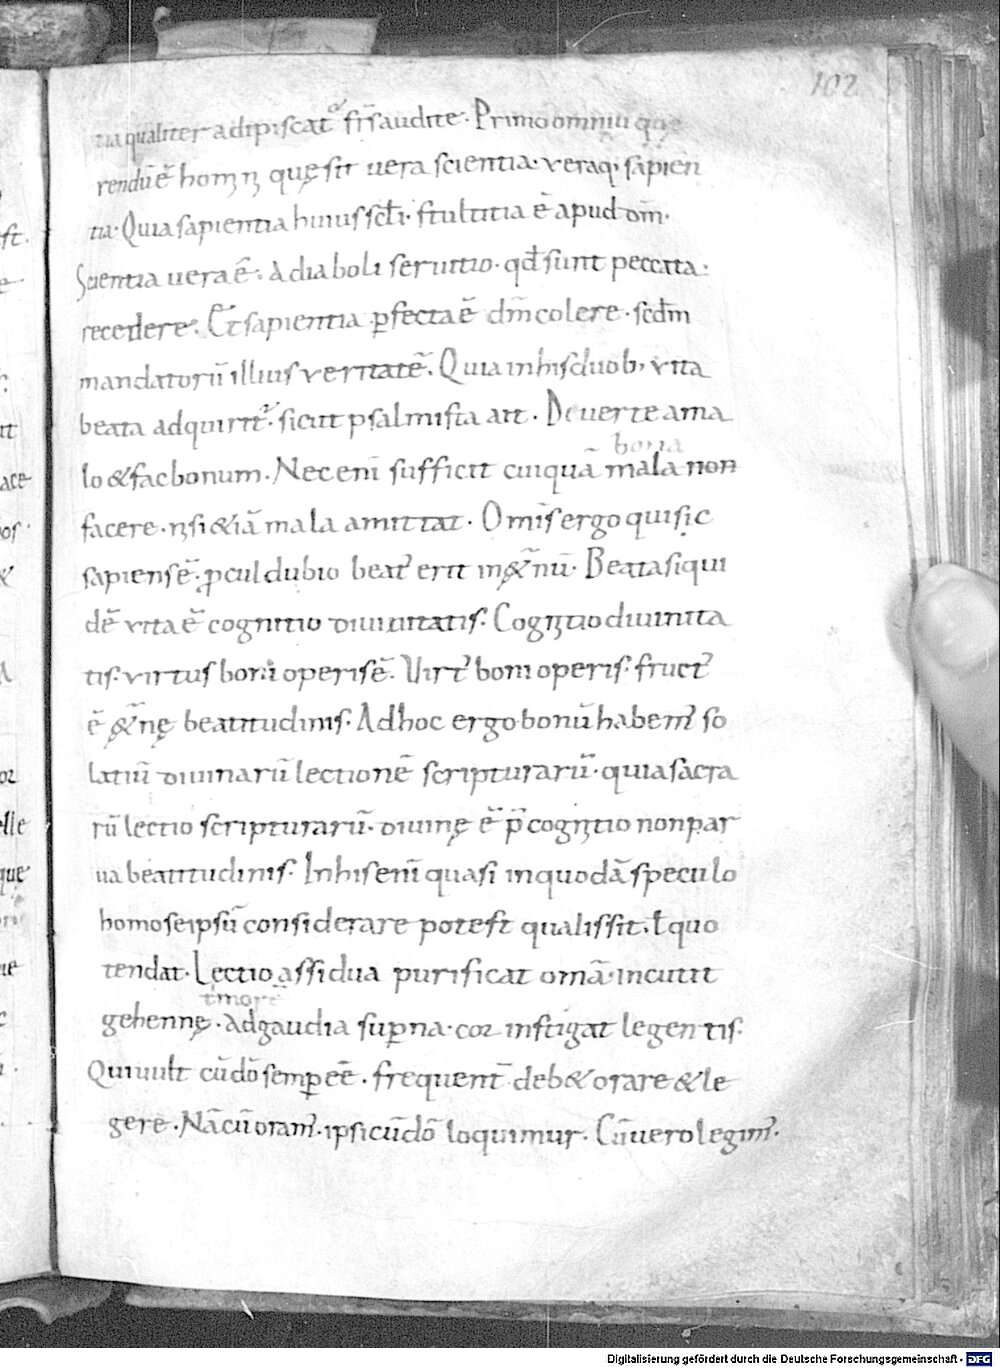 102
tia qualiter adipiscat᷑ fr̄s audite. Primo omniū quę
rendū ē homīnī quę sit uera scientia. veraq; sapien
tia. Quia sapientia huius scłi. stultitia ē apud dm̄.
Scientia uera ē. A diaboli seruitio. qđ sunt peccata:
recedere. Et sapientia ꝑfecta ē dm̄ colere. scdm̄
mandatorū illius veritatē. Quia in his duob; vita
beata adquirit᷑. sicut psalmista ait. Deuerte a ma
lo & fac bonum. Nec eni̅ sufficit cuiquā mala non
bona
facere. nisi &iā mala amittat. Omīs ergo qui sic
sapiens ē. ꝓcul dubio beat᷒ erit in &̄nū. Beata siqui
dē vita ē cognitio diuinitatis. Cognitio diuinita
tis. virtus boni operis ē. Uirt᷒ boni operis. fruct᷒
ē &̄nę beatitudinis. Ad hoc ergo bonū habem᷒ so
latiū diuinarū lectionē scripturarū. quia sacra
rū lectio scripturarū. diuinę ē p̄cognitio non par
ua beatitudinis. In his eni̅ quasi in quodā speculo
homo seipsū considerare potest qualis sit. ł quo
tendat. Lectio assidua purificat om̄a. incutit
timorē
gehennę. ad gaudia suꝑna. cor instigat legentis.
Qui uult cū dō semꝑ eē. frequent̄ deb& orare & le
gere. Nā cū oram᷒. ipsi cū dō loquimur. Cū uero legim᷒.
Digitalisierung gefördert durch die Deutsche Forschungsgemeinschaft - DFG